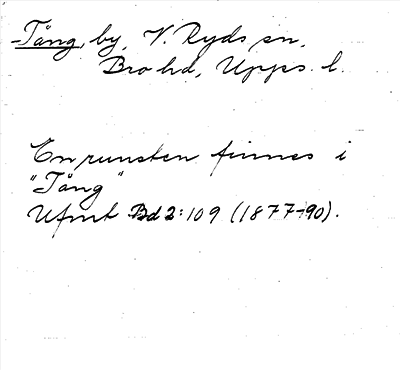 -Tång, by, V. Ryds sn,
Bro hd, Upps. l.
En runsten finnes i
"Tång"
Ufmt Bd 2:109 (1877-90).